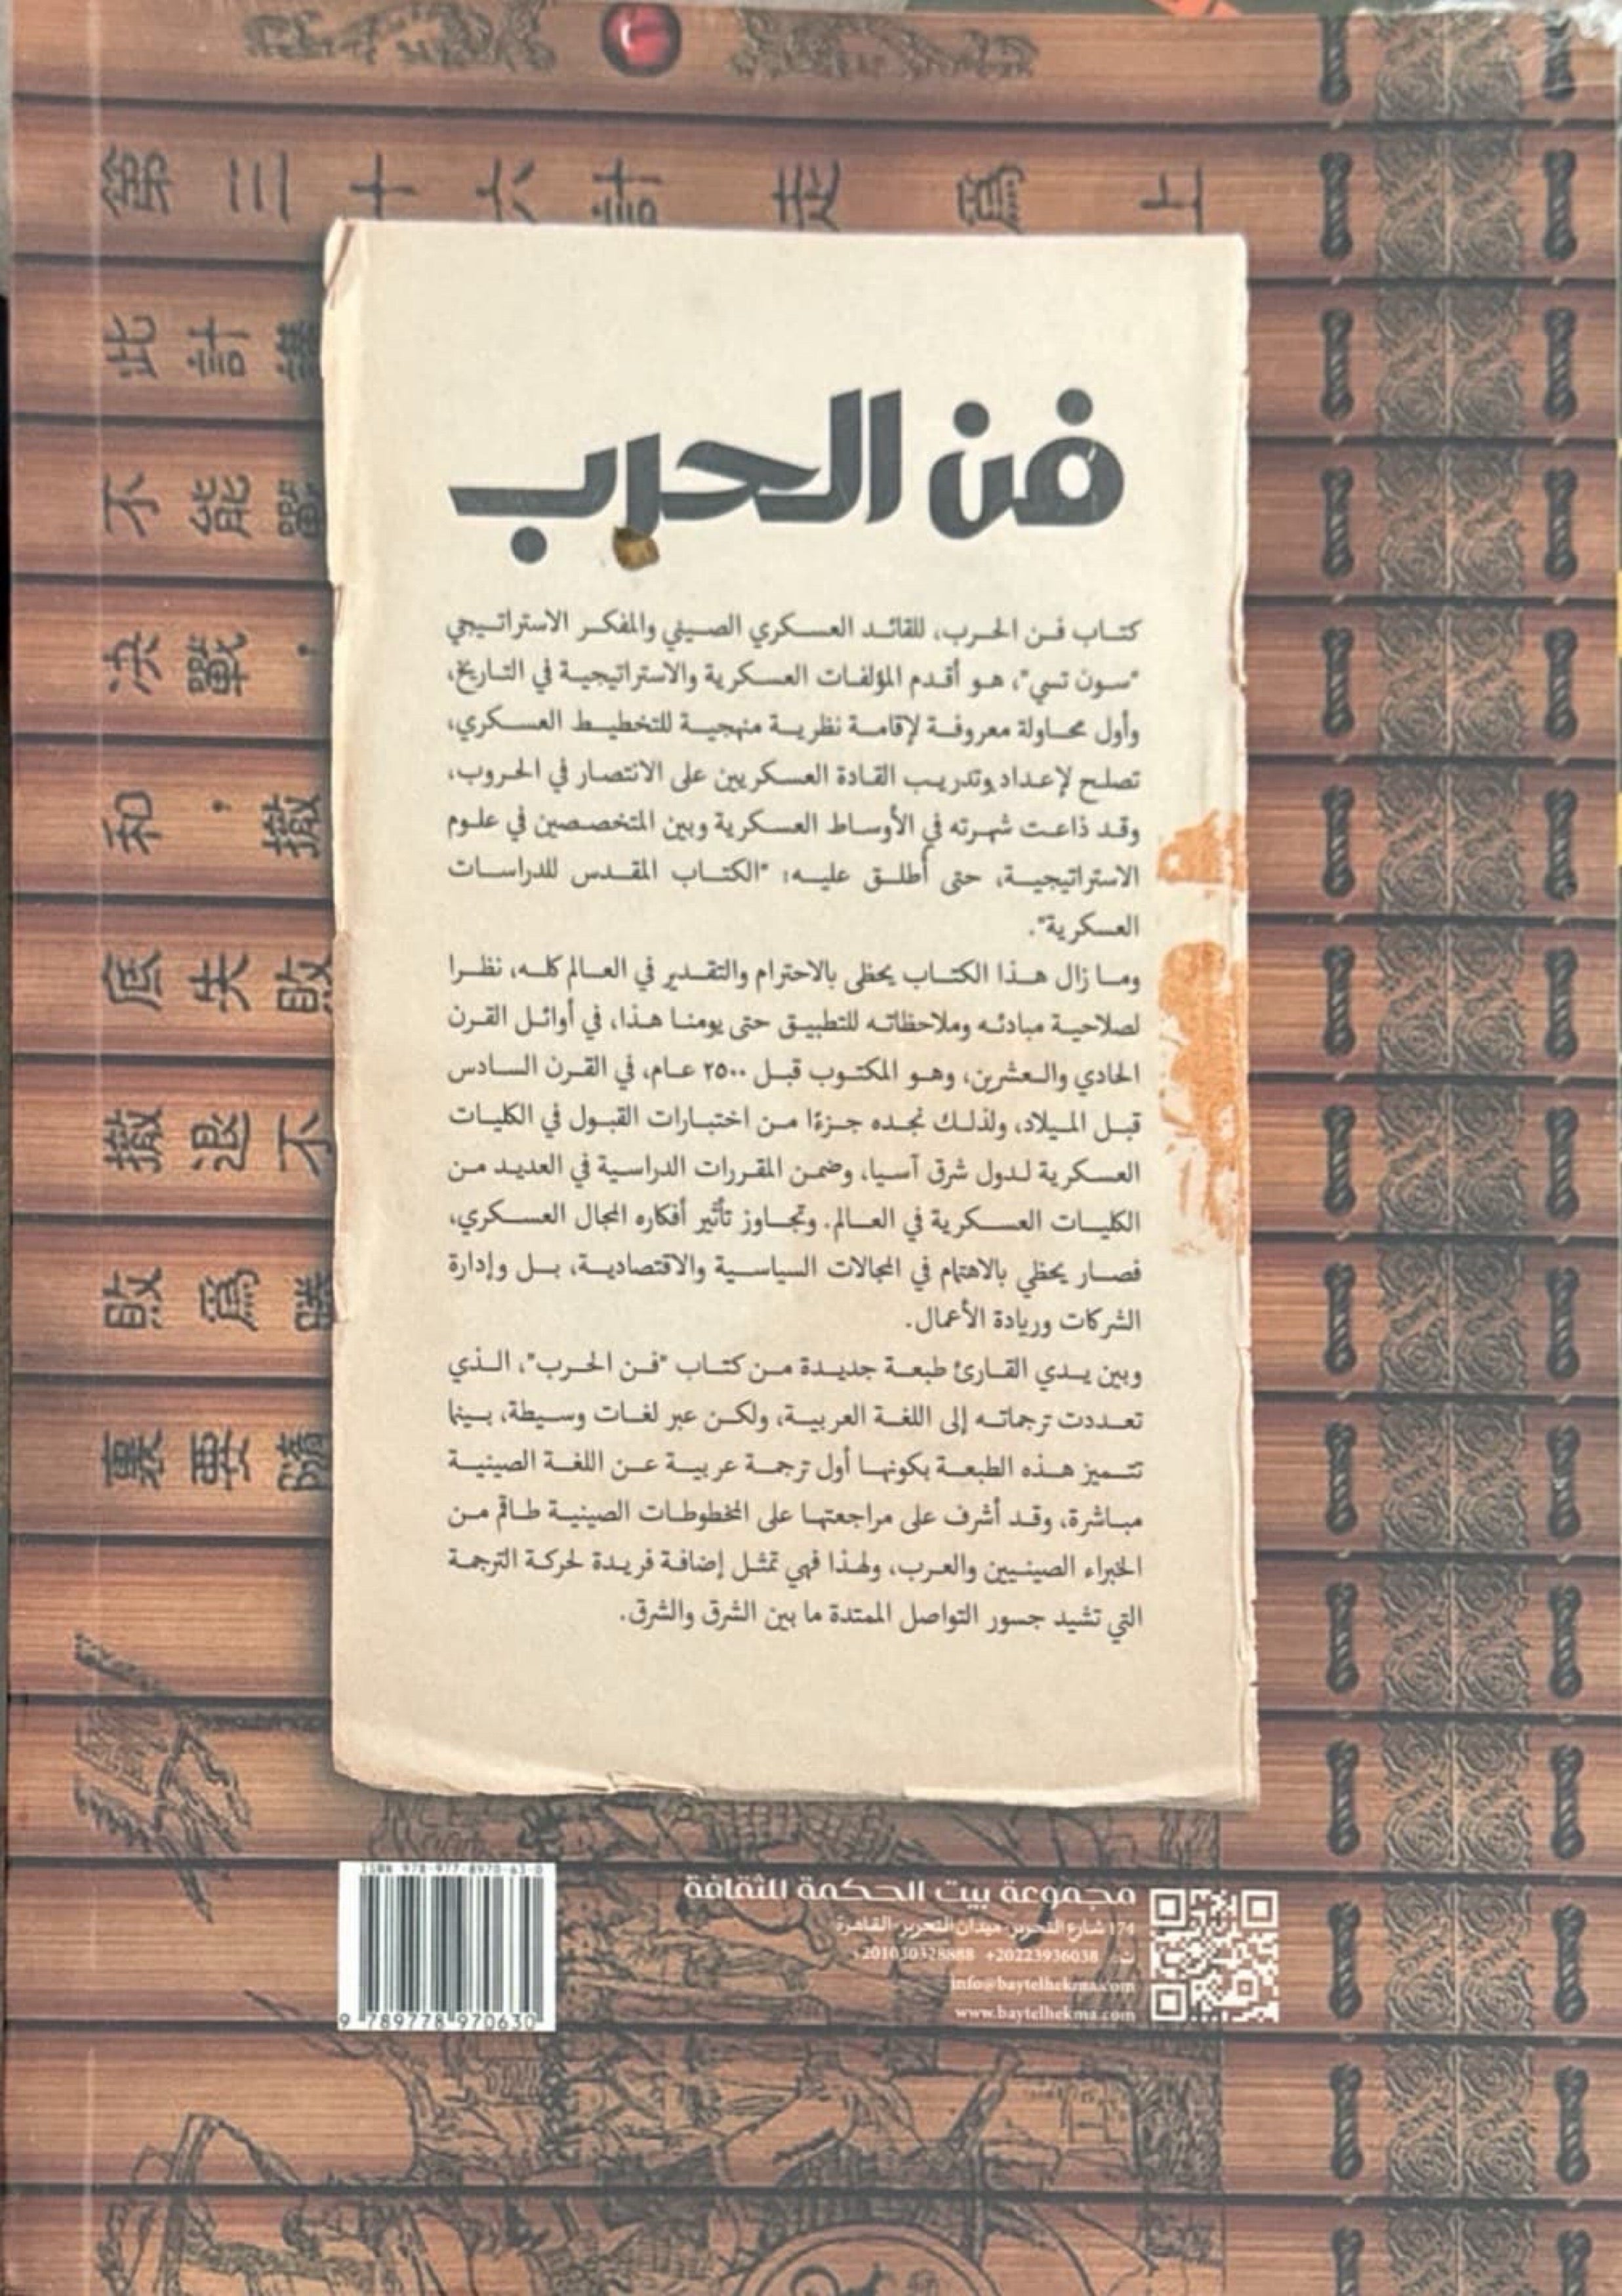 第三十六計走為上
此計
不能
決戰，
和，撤
底失敗
撤退不
敗為勝
裏要隨
فن الحرب
كتاب فن الحرب، للقائد العسكري الصيني والمفكر الاستراتيجي
"سون تسي"، هو أقدم المؤلفات العسكرية والاستراتيجية في التاريخ،
وأول محاولة معروفة لإقامة نظرية منهجية للتخطيط العسكري،
تصلح لإعداد وتدريب القادة العسكريين على الانتصار في الحروب،
وقد ذاعت شهرته في الأوساط العسكرية وبين المتخصصين في علوم
الاستراتيجية، حتى أطلق عليه: "الكتاب المقدس للدراسات
العسكرية".
وما زال هذا الكتاب يحظى بالاحترام والتقدير في العالم كله، نظرا
لصلاحية مبادئه وملاحظاته للتطبيق حتى يومنا هذا، في أوائل القرن
الحادي والعشرين، وهو المكتوب قبل ٢٥٠٠ عام، في القرن السادس
قبل الميلاد، ولذلك نجده جزءًا من اختبارات القبول في الكليات
العسكرية لدول شرق آسيا، وضمن المقررات الدراسية في العديد من
الكليات العسكرية في العالم. وتجاوز تأثير أفكاره المجال العسكري،
فصار يحظي بالاهتمام في المجالات السياسية والاقتصادية، بل وإدارة
الشركات وريادة الأعمال.
وبين يدي القارئ طبعة جديدة من كتاب "فن الحرب"، الذي
تعددت ترجماته إلى اللغة العربية، ولكن عبر لغات وسيطة، بينما
تتميز هذه الطبعة بكونها أول ترجمة عربية عن اللغة الصينية
مباشرة، وقد أشرف على مراجعتها على المخطوطات الصينية طاقم من
الخبراء الصينيين والعرب، ولهذا فهي تمثل إضافة فريدة لحركة الترجمة
التي تشيد جسور التواصل الممتدة ما بين الشرق والشرق.
مجموعة بيت الحكمة للثقافة
174 شارع التحرير-ميدان التحرير-القاهرة
ت: +20223936038 +201030328888
info@baytelhekma.com
www.baytelhekma.com
ISBN 978-977-8970-63-0
9 789778 970630